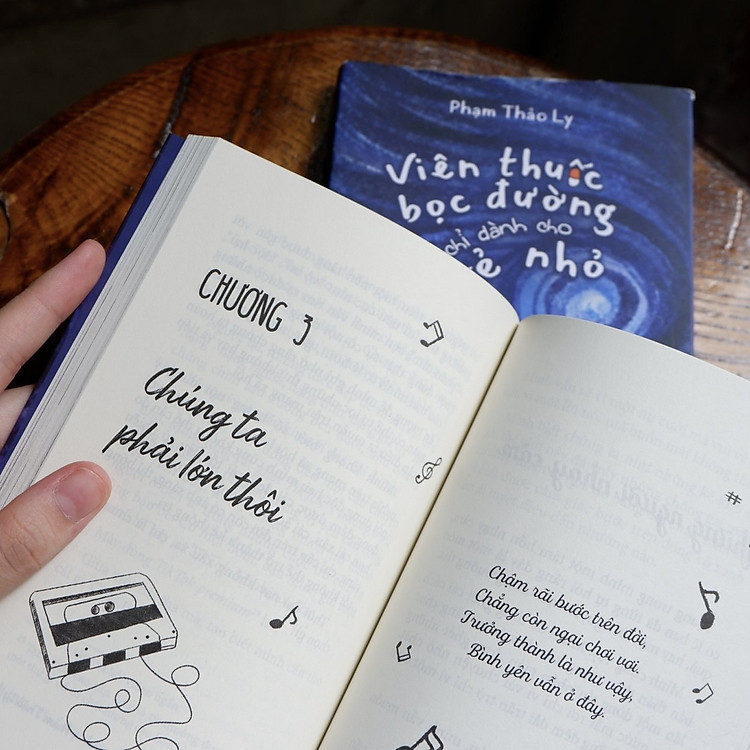 Phạm Thảo Ly
Viên thuốc
bọc đường
chỉ dành cho
kẻ nhỏ
CHƯƠNG 3
Chúng ta
phải lớn thôi
Chậm rãi bước trên đời,
Chẳng còn ngại chơi vơi.
Trưởng thành là như vậy,
Bình yên vẫn ở đây.